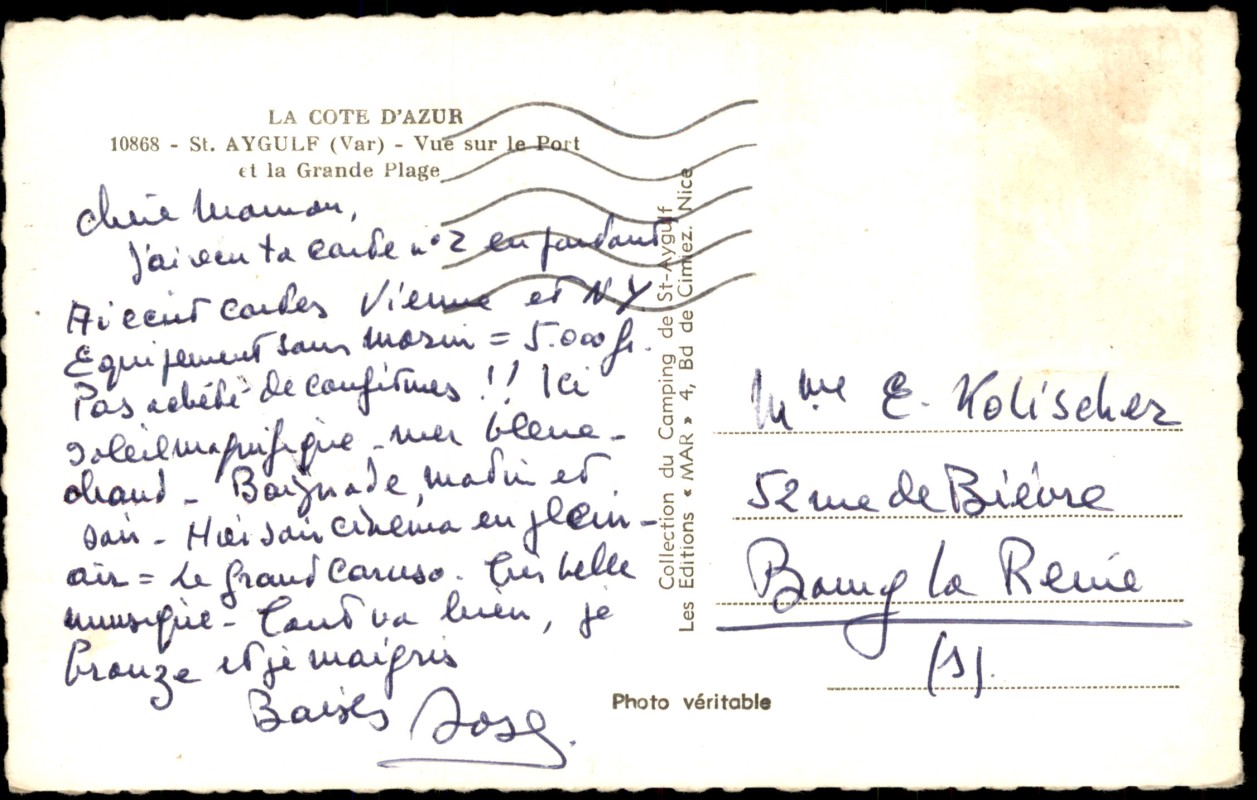 LA COTE D'AZUR
10868 - St. AYGULF (Var) - Vue sur le Port
et la Grande Plage
Chère Maman,
J'ai reçu ta carte n°2 en partant
Ai écrit cartes Vienne et NY
Equipement sous marin = 5.000 fr.
Pas acheté de confitures !! Ici
soleil magnifique - mer bleue -
chaud - Baignade, matin et
soir - Hier soir cinéma en plein -
air = Le Grand Caruso. Très belle
musique - Tout va bien, je
bronze et je maigris
Baisers
Collection du Camping de St-Aygulf
Les Editions « MAR » 4, Bd de Cimiez. Nice
Photo véritable
Mme E. Kolischer
52 rue de Bièvre
Bourg la Reine
(S).